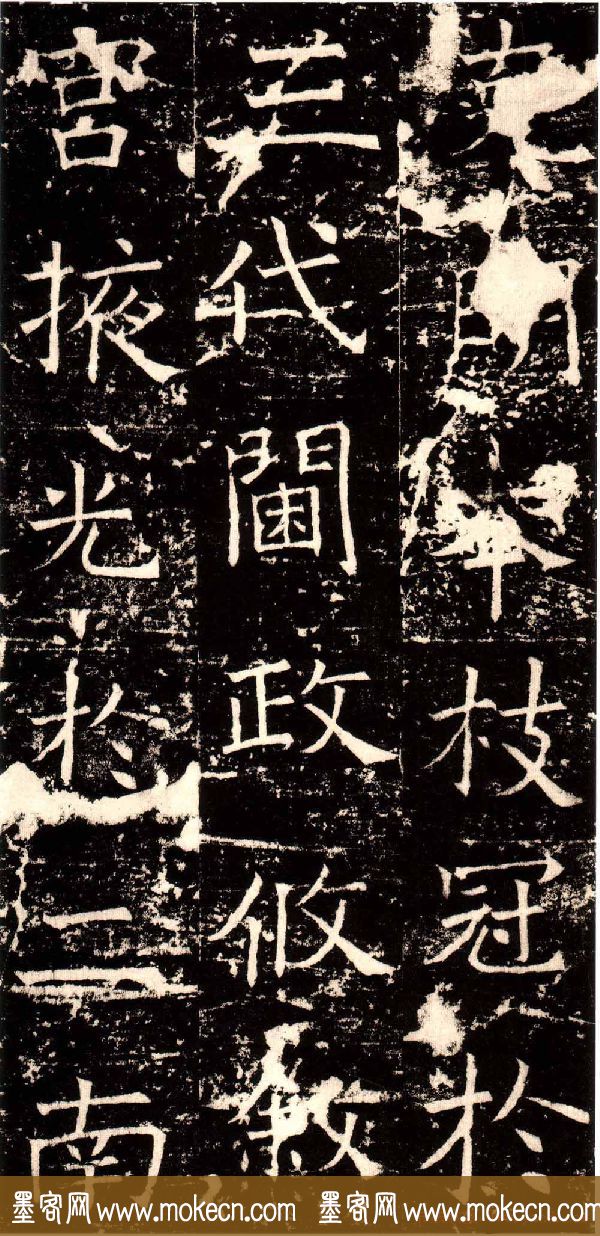 本枝冠於
三代閫政攸敘
宮掖光於二南
墨客网 www.mokecn.com 墨客网 www.mokecn.com